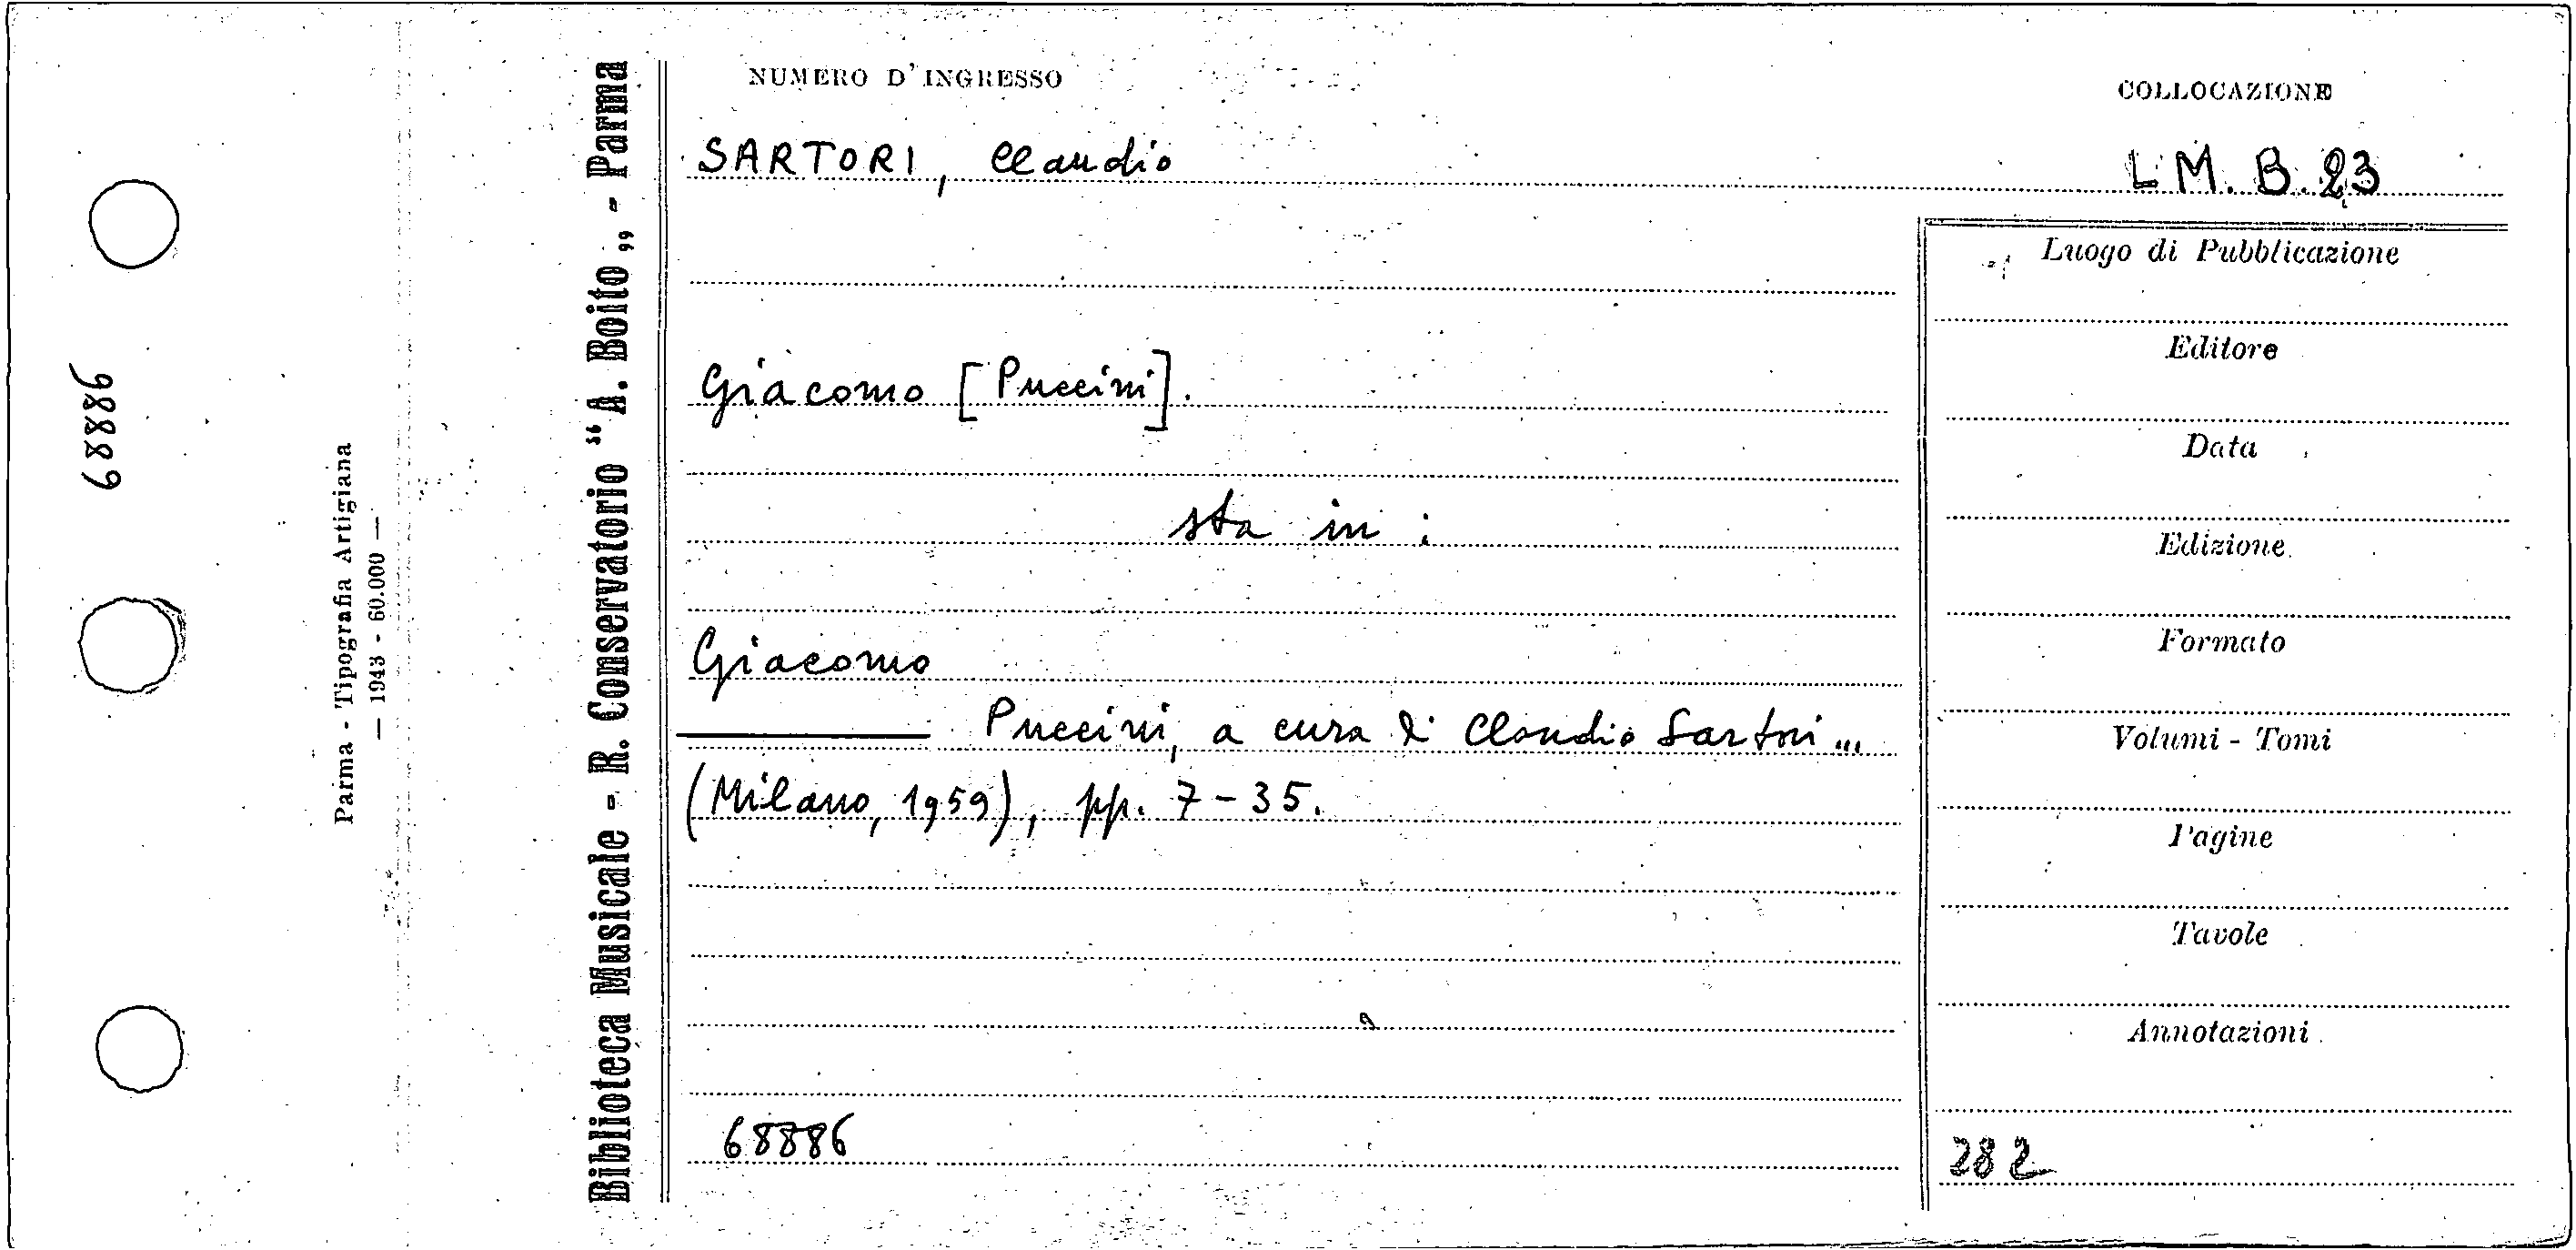 68886
Parma - Tipografia Artigiana
— 1943 - 60.000 —
Biblioteca Musicale - R. Conservatorio “A. Boito„ - Parma
NUMERO D'INGRESSO
COLLOCAZIONE
SARTORI, Claudio
L M. B. 23
Giacomo [Puccini].
sta in :
Giacomo
Puccini, a cura di Claudio Sartori ...
(Milano, 1959), pp. 7 - 35.
68886
Luogo di Pubblicazione
Editore
Data
Edizione
Formato
Volumi - Tomi
Pagine
Tavole
Annotazioni
282